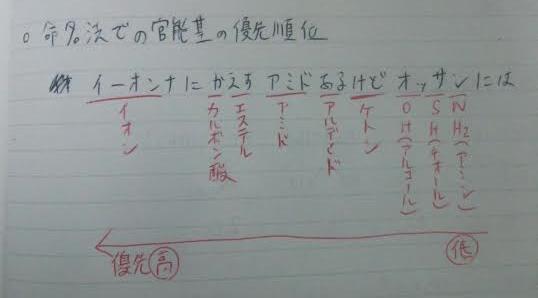 ○命名法での官能基の優先順位
イーオンナに かえす アミド あるけど オッサンには
イオン
カルボン酸
エステル
アミド
アルデヒド
ケトン
OH(アルコール)
SH(チオール)
NH2(アミン)
優先 高
低